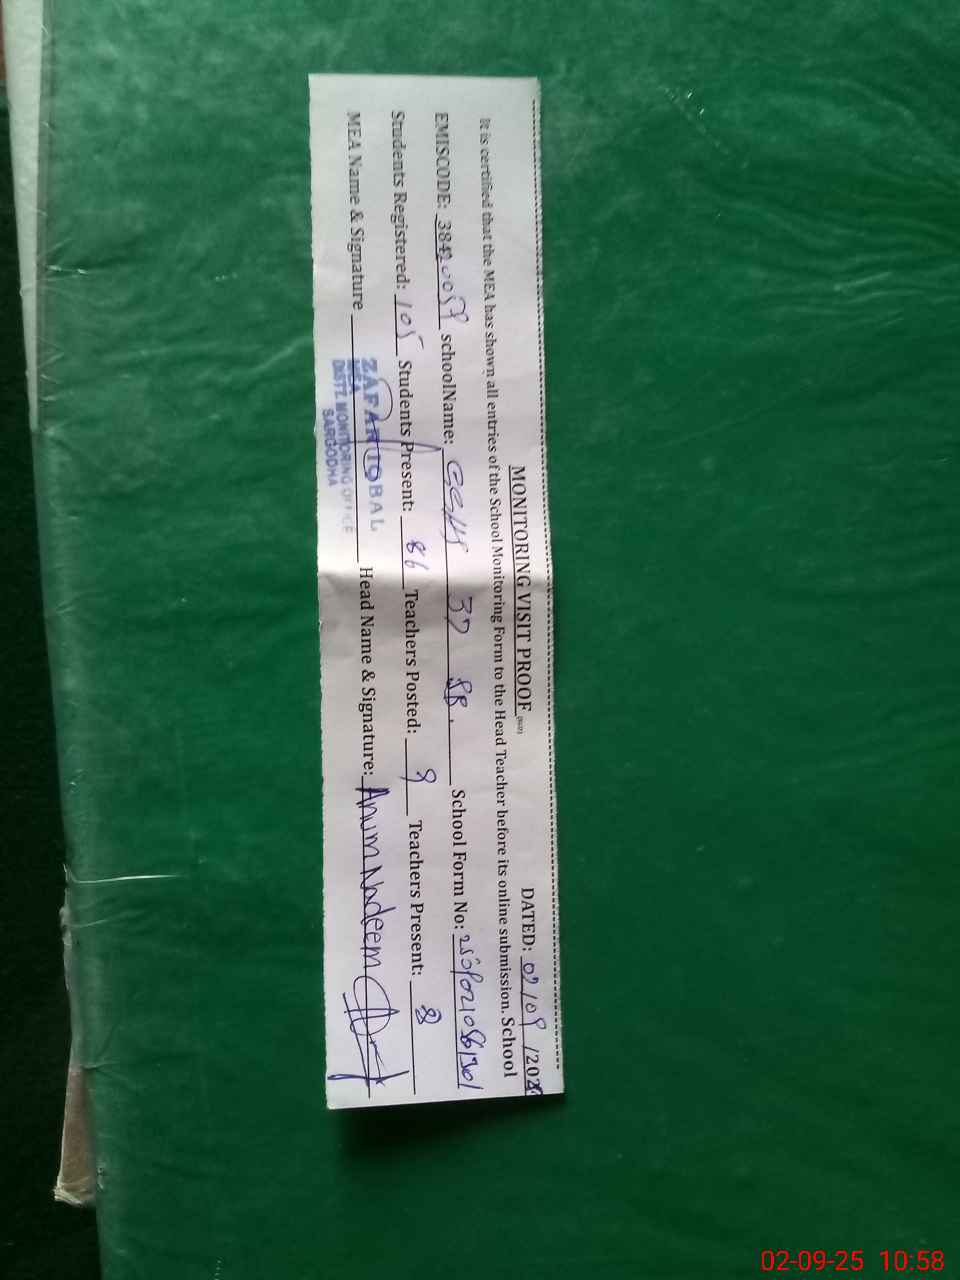 MONITORING VISIT PROOF DATED: 02/09/202
It is certified that the MEA has shown all entries of the School Monitoring Form to the Head Teacher before its online submission. School
EMISCODE: 38420057 schoolName: 37 SB. School Form No:
Students Registered: 105 Students Present: 86 Teachers Posted: 9 Teachers Present: 8
MEA Name & Signature Head Name & Signature: Anum Nadeem
ZAFAR IQBAL
MEA
DISTT. MONITORING OFFICE
SARGODHA
02-09-25 10:58